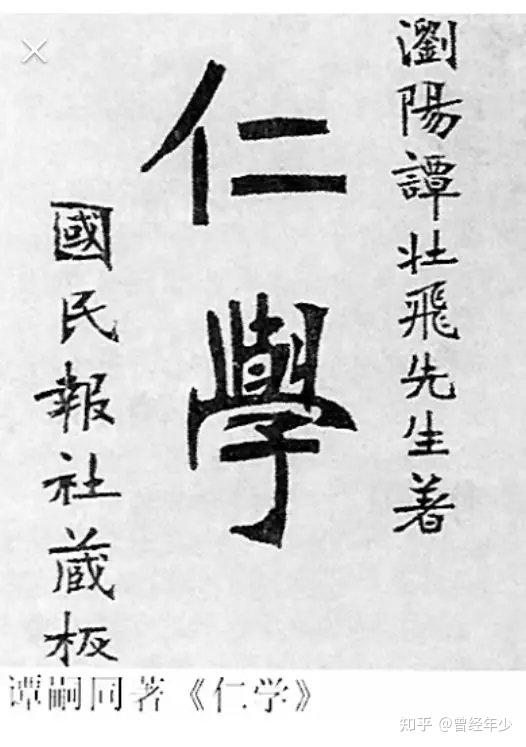 瀏陽譚壯飛先生著
仁學
國民報社藏板
谭嗣同著《仁学》
知乎 @曾经年少